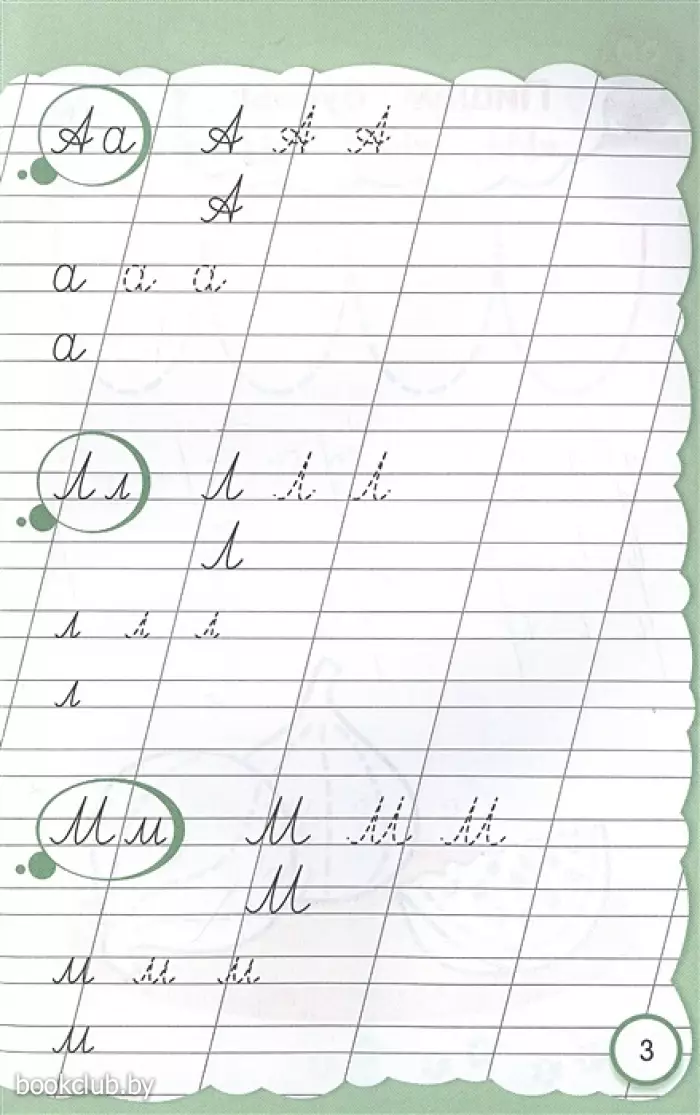 Аа А А А
А
а а а
а
Лл Л Л Л
Л
л л л
л
Мм М М М
М
м м м
м
3
bookclub.by